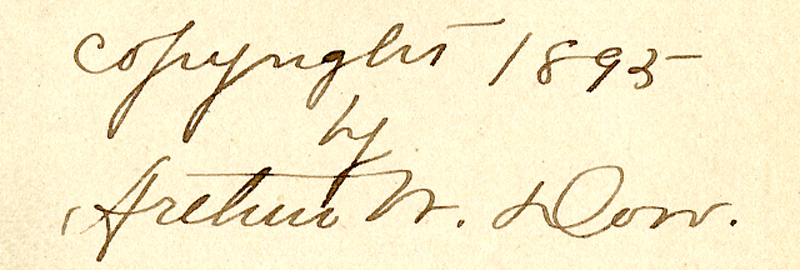 copyright 1895
by
Arthur W. Dow.